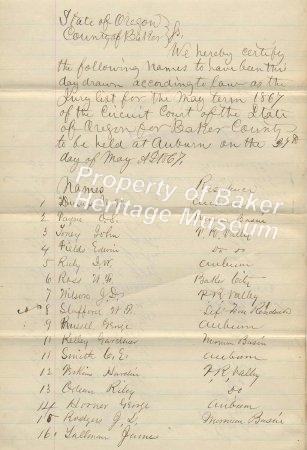 State of Oregon } ss.
County of Baker
We hereby certify
the following names to have been this
day drawn according to law as the
Jury list for the May term 1867
of the Circuit Court of the State
of Oregon for Baker County
to be held at Auburn on the 27th
day of May AD 1867
Names Residence
1 Auburn
2 C.E. Mormon Basin
3 Toney John P.R. Valley
4 Field Edwin do do
5 Auburn
6 Ross W.F. Baker City
7 Wilson J.D. P.R. Valley
8 Stafford W.F.
9 Russell George Auburn
11 Kelley Gardner Mormon Basin
11 Smith C.E. Auburn
12 Hardin P.R. Valley
13 Odean Riley do
14 Horner George Auburn
15 Rodgers J.L. Mormon Basin
16 Tallman James
Property of Baker
Heritage Museum